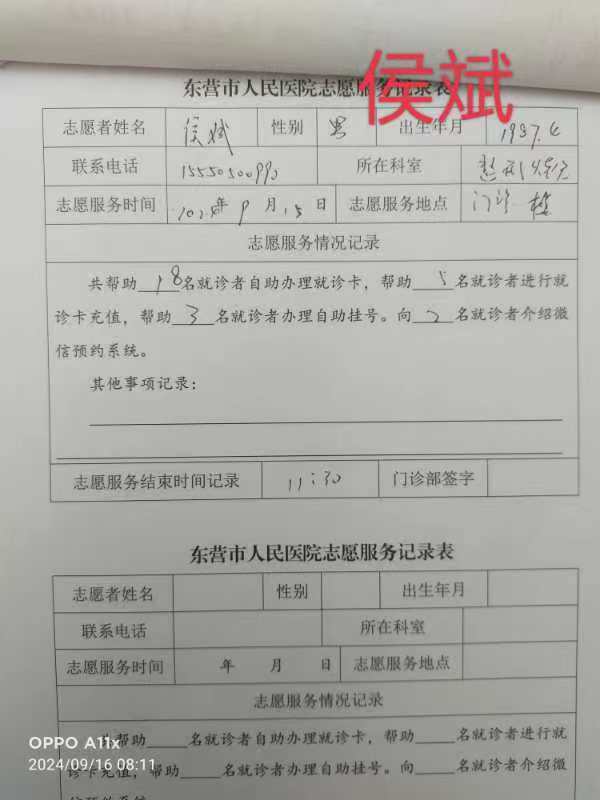 东营市人民医院志愿服务记录表
侯斌
志愿者姓名 侯斌 性别 男 出生年月 1987.6
联系电话 15550500990 所在科室
志愿服务时间 2024年 9月15日 志愿服务地点 门诊楼
志愿服务情况记录
共帮助18名就诊者自助办理就诊卡，帮助5名就诊者进行就
诊卡充值，帮助3名就诊者办理自助挂号。向2名就诊者介绍微
信预约系统。
其他事项记录：
志愿服务结束时间记录 11:30 门诊部签字
东营市人民医院志愿服务记录表
志愿者姓名 性别 出生年月
联系电话 所在科室
志愿服务时间 年 月 日 志愿服务地点
志愿服务情况记录
共帮助____名就诊者自助办理就诊卡，帮助____名就诊者进行就
诊卡充值，帮助____名就诊者办理自助挂号。向____名就诊者介绍微
信预约系统。
OPPO A11x
2024/09/16 08:11